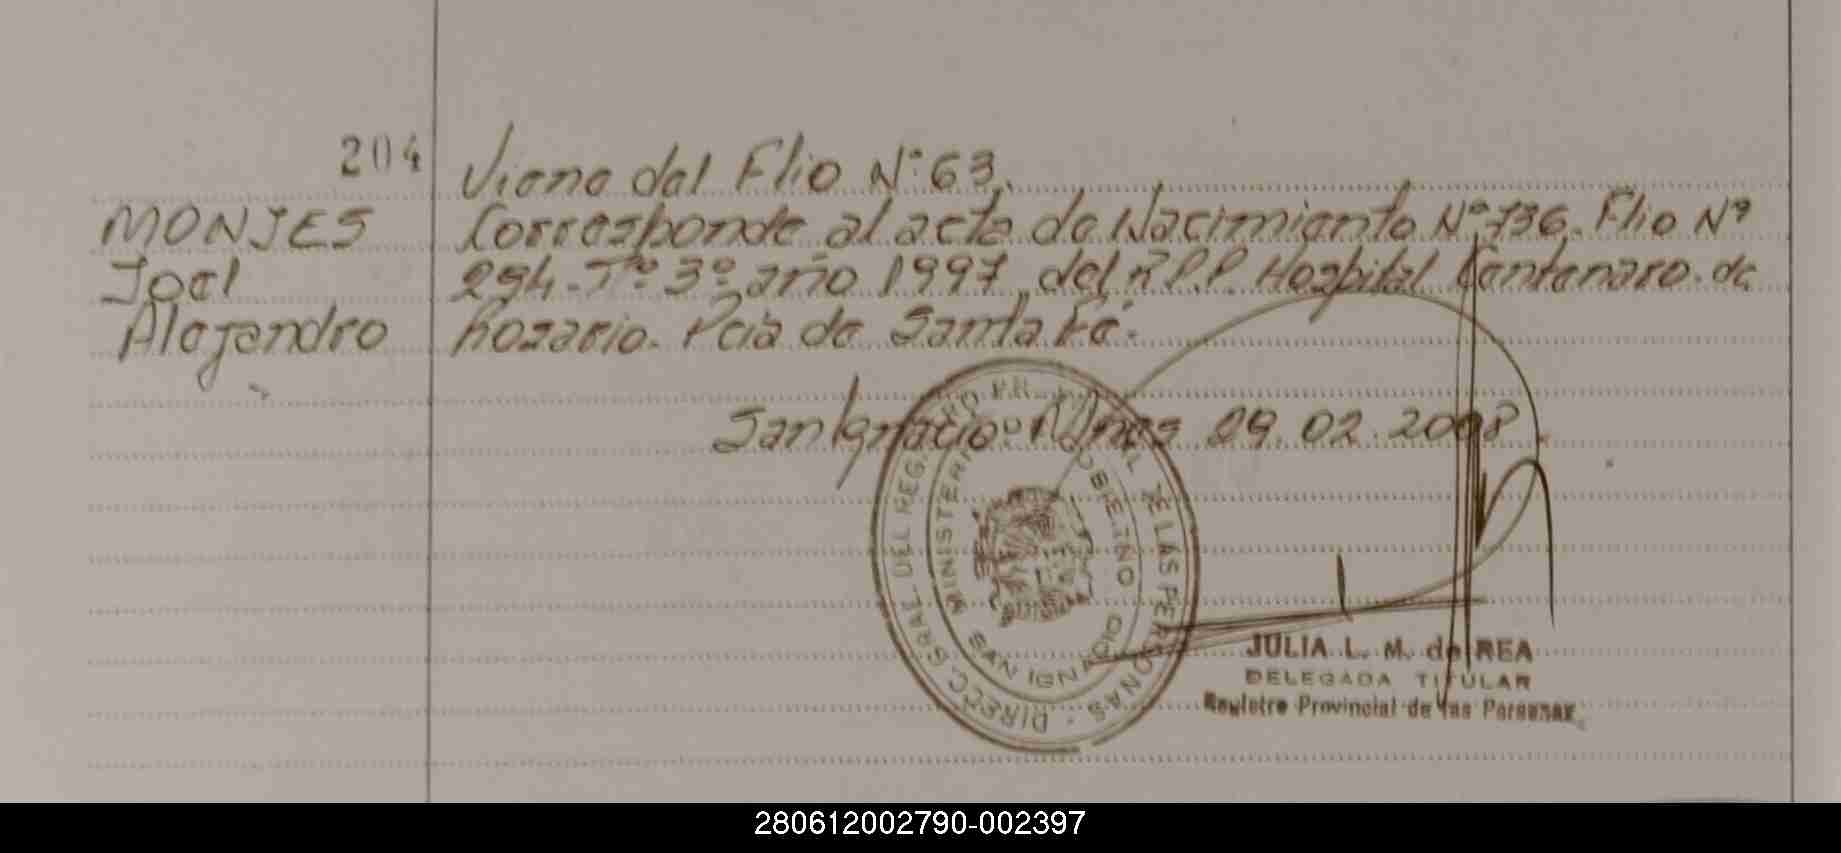 204
Viene del Flio Nº 63.
MONJES
Joel
Alejandro
Corresponde al acta de Nacimiento Nº 736. Flio Nº
294. Tº 3º año 1997 del R.P.P. Hospital Centenaro. de
Rosario. Pcia de Santa Fé.
San Ignacio. Mnes 29.02.2008.
DIRECC. GRAL. DEL REG. DE LAS PERSONAS
MINISTERIO GOBIERNO
SAN IGNACIO
JULIA L. M. de REA
DELEGADA TITULAR
Registro Provincial de las Personas
280612002790-002397